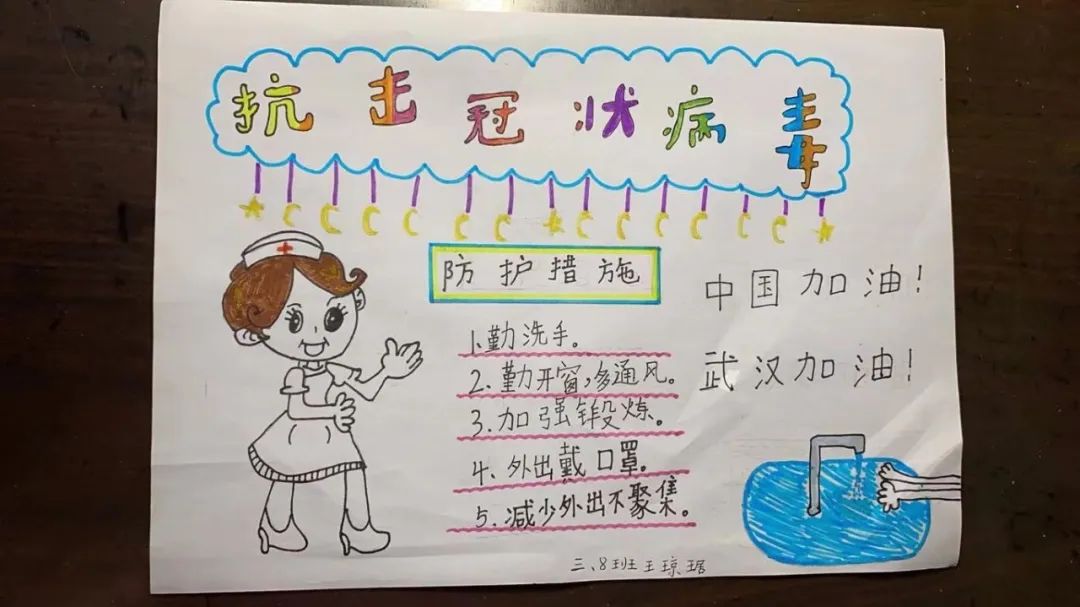 抗击冠状病毒
防护措施
1.勤洗手。
2.勤开窗,多通风。
3.加强锻炼。
4.外出戴口罩。
5.减少外出不聚集。
中国加油!
武汉加油!
三、8班王琼琚